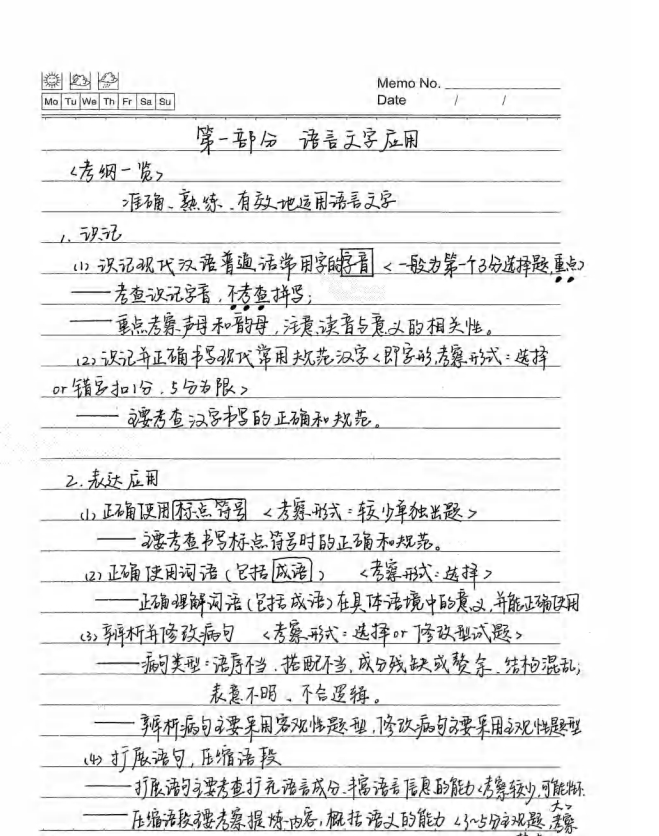 Memo No.
Mo Tu We Th Fr Sa Su
Date / /
第一部分 语言文字应用
<考纲一览>
准确、熟练、有效地运用语言文字
1. 识记
(1) 识记现代汉语普通话常用字的字音 <一般为第一个3分选择题,重点>
——考查识记字音,不考查拼写;
——重点考察声母和韵母,注意读音与意义的相关性。
(2) 识记并正确书写现代常用规范汉字<即字形,考察形式:选择
or 错字扣1分,5分为限>
——主要考查汉字书写的正确和规范。
2. 表达应用
(1) 正确使用标点符号 <考察形式:较少单独出题>
——主要考查书写标点符号时的正确和规范。
(2) 正确使用词语(包括成语) <考察形式:选择>
——正确理解词语(包括成语)在具体语境中的意义,并能正确使用
(3) 辨析并修改病句 <考察形式:选择or修改型试题>
——病句类型:语序不当、搭配不当,成分残缺或赘余、结构混乱;
表意不明、不合逻辑。
——辨析病句主要采用客观性题型,修改病句主要采用主观性题型
(4) 扩展语句,压缩语段
——扩展语句主要考查扩充语言成分、丰富语言信息的能力<考察较少,可能性不
大>
——压缩语段主要考察提炼内容,概括语义的能力<3~5分主观题,考察